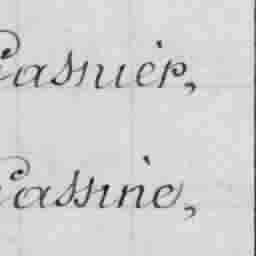 Casnier,
Cassine,